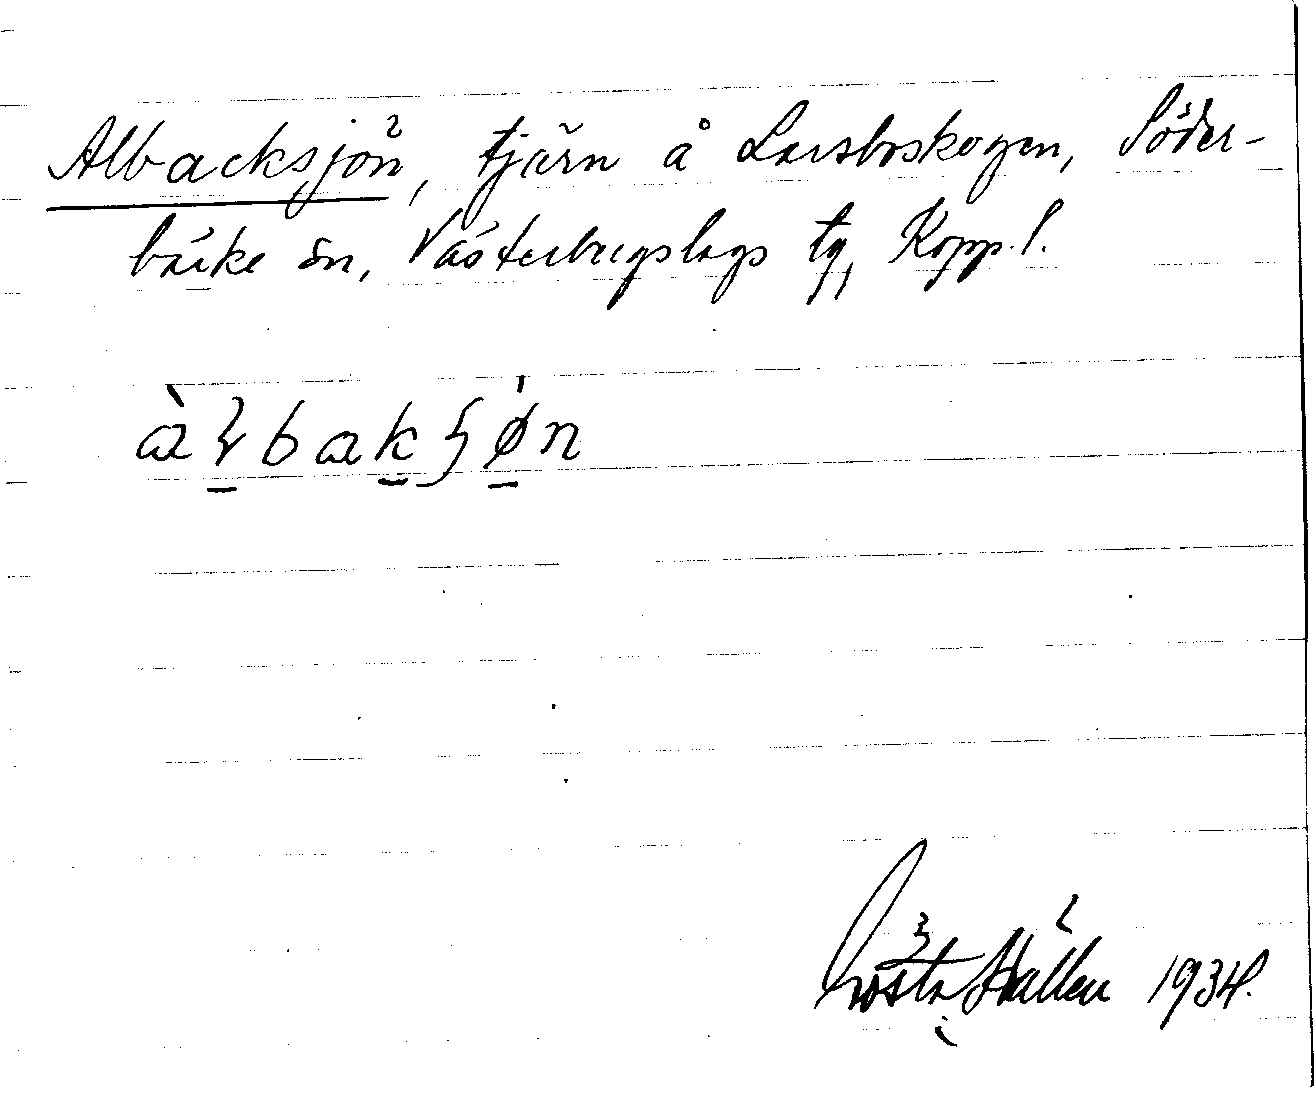 Albacksjön, tjärn å Larsboskogen, Söder-
bärke sn, Västerbergslags tg, Kopp. l.
Gösta Hållen 1934.